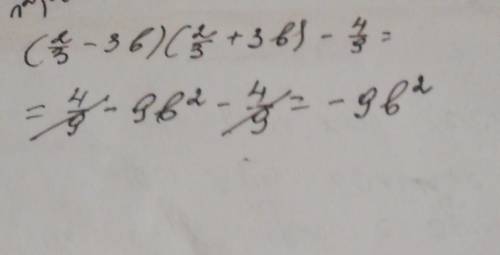 (2/3 - 3b)(2/3 + 3b) - 4/9 =
= 4/9 - 9b² - 4/9 = - 9b²